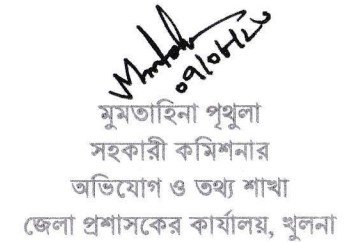 ০৭/০৮/২৩
মুমতাহিনা পৃথুলা
সহকারী কমিশনার
অভিযোগ ও তথ্য শাখা
জেলা প্রশাসকের কার্যালয়, খুলনা